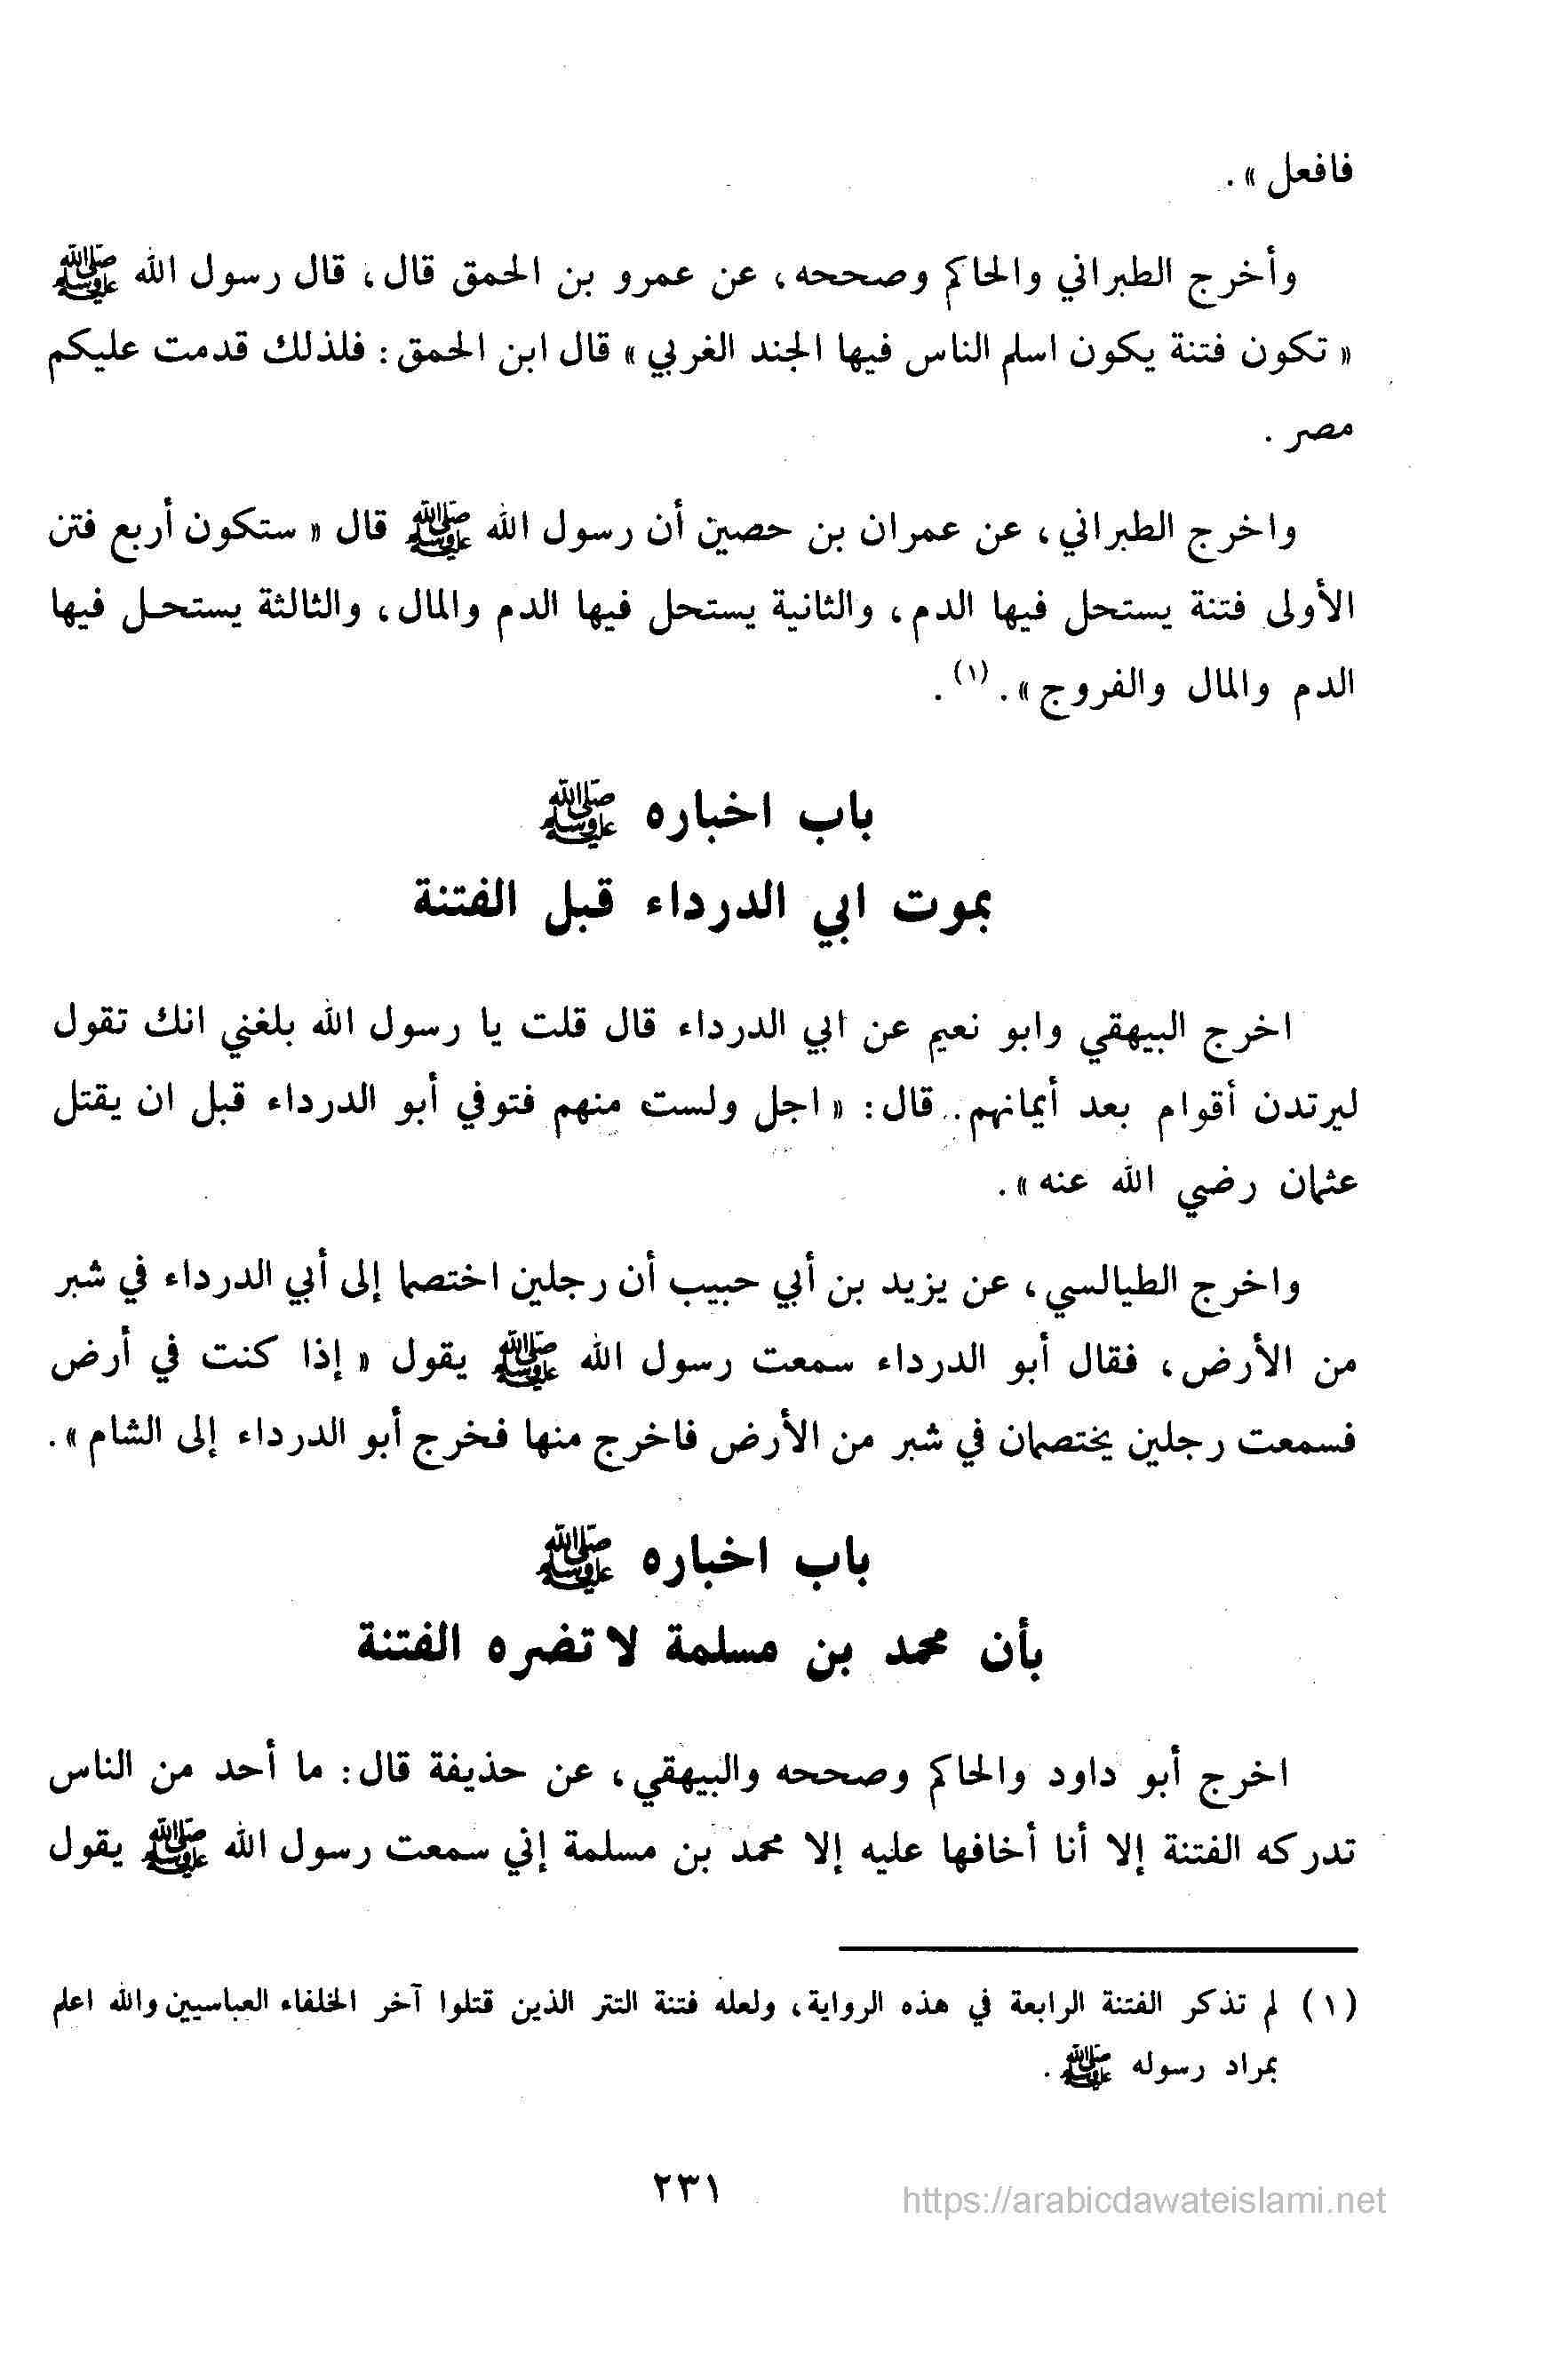 فافعل».
وأخرج الطبراني والحاكم وصححه، عن عمرو بن الحمق قال، قال رسول الله ﷺ
« تكون فتنة يكون اسلم الناس فيها الجند الغربي » قال ابن الحمق: فلذلك قدمت عليكم
مصر.
واخرج الطبراني، عن عمران بن حصين أن رسول الله ﷺ قال « ستكون أربع فتن
الأولى فتنة يستحل فيها الدم، والثانية يستحل فيها الدم والمال، والثالثة يستحل فيها
الدم والمال والفروج». (١).
باب اخباره ﷺ
بموت ابي الدرداء قبل الفتنة
اخرج البيهقي وابو نعيم عن ابي الدرداء قال قلت يا رسول الله بلغني انك تقول
ليرتدن أقوام بعد أيمانهم.. قال: « اجل ولست منهم فتوفي أبو الدرداء قبل ان يقتل
عثمان رضي الله عنه».
واخرج الطيالسي، عن يزيد بن أبي حبيب أن رجلين اختصما إلى أبي الدرداء في شبر
من الأرض، فقال أبو الدرداء سمعت رسول الله ﷺ يقول « إذا كنت في أرض
فسمعت رجلين يختصمان في شبر من الأرض فاخرج منها فخرج أبو الدرداء إلى الشام».
باب اخباره ﷺ
بأن محمد بن مسلمة لا تضره الفتنة
اخرج أبو داود والحاكم وصححه والبيهقي، عن حذيفة قال: ما أحد من الناس
تدركه الفتنة إلا أنا أخافها عليه إلا محمد بن مسلمة إني سمعت رسول الله ﷺ يقول
(١) لم تذكر الفتنة الرابعة في هذه الرواية، ولعله فتنة التتر الذين قتلوا آخر الخلفاء العباسيين والله اعلم
بمراد رسوله ﷺ.
٢٣١
https://arabicdawateislami.net